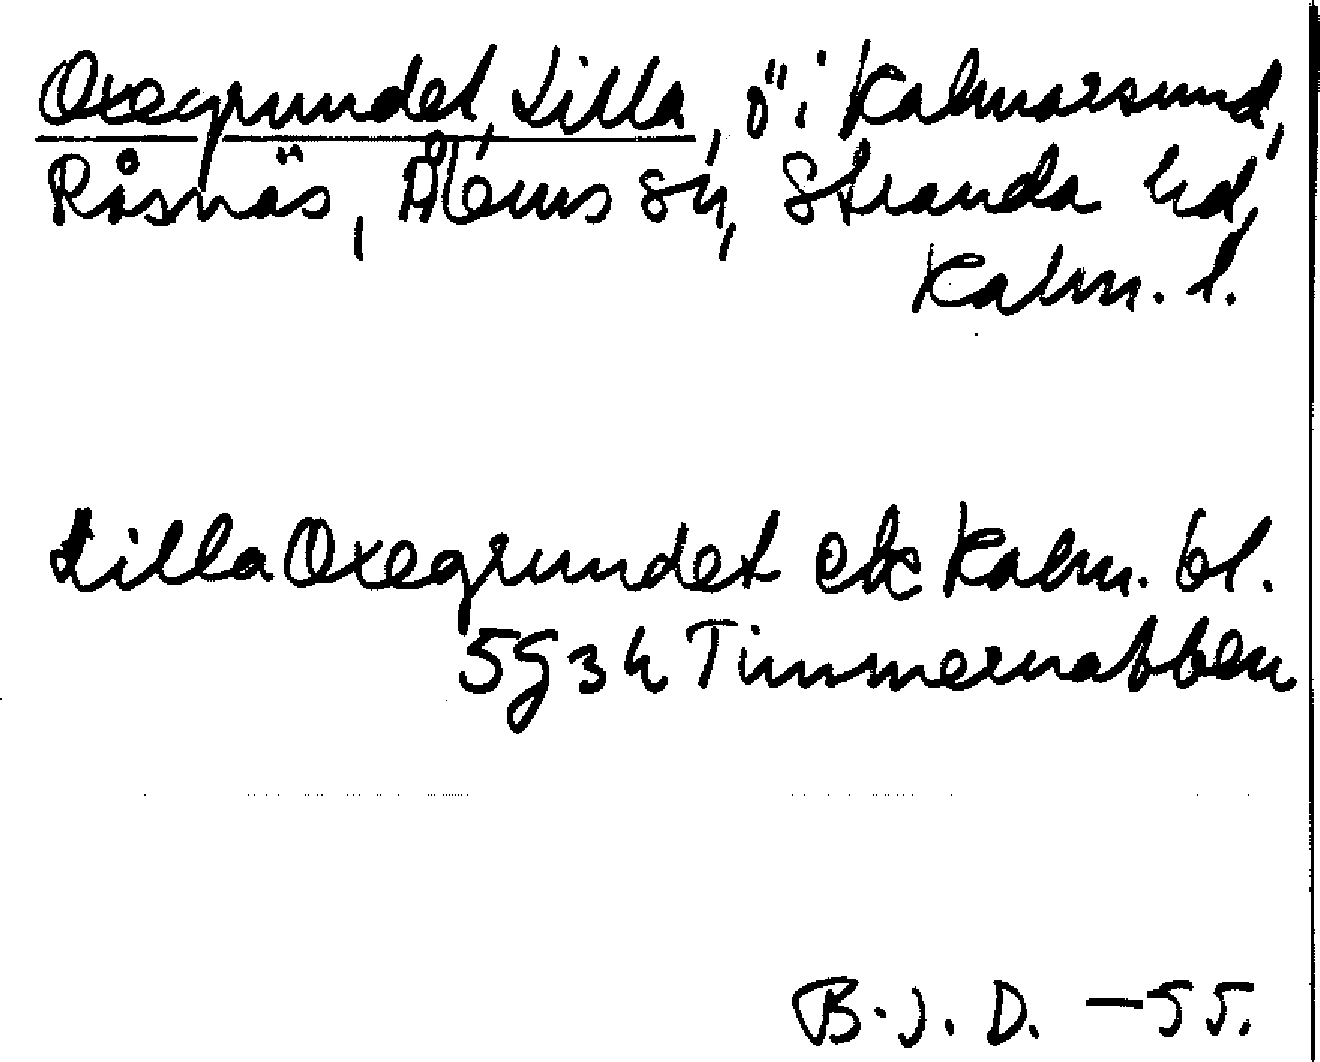 Oxegrundet, Lilla, ö i Kalmarsund,
Råsnäs, Ålems sn, Stranda hd,
Kalm. l.
Lilla Oxegrundet ek Kalm. bl.
5g3h Timmernabben
B.J.D. -55.